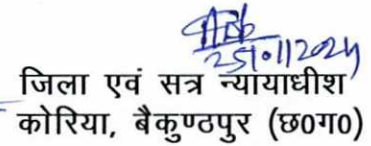 25/01/2024
जिला एवं सत्र न्यायाधीश
कोरिया, बैकुण्ठपुर (छ0ग0)